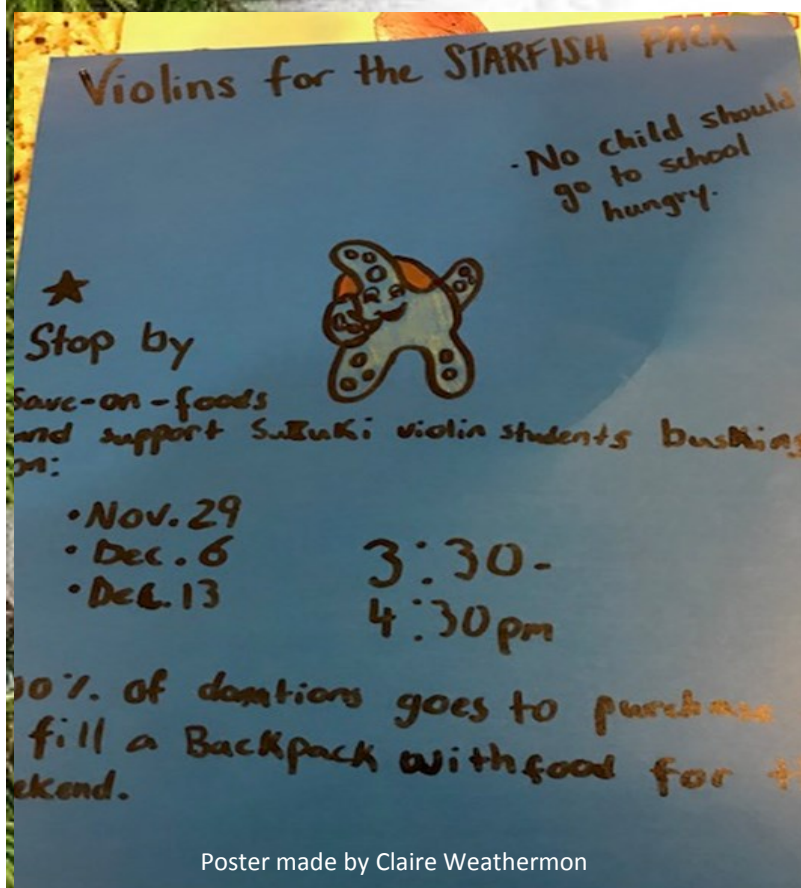 Violins for the STARFISH PACK
- No child should
go to school
hungry.
Stop by
Save-on-foods
and support Suzuki violin students busking
on:
• Nov. 29
• Dec. 6
• Dec. 13
3:30-
4:30pm
00% of donations goes to purchase
fill a Backpack with food for
ekend.
Poster made by Claire Weathermon